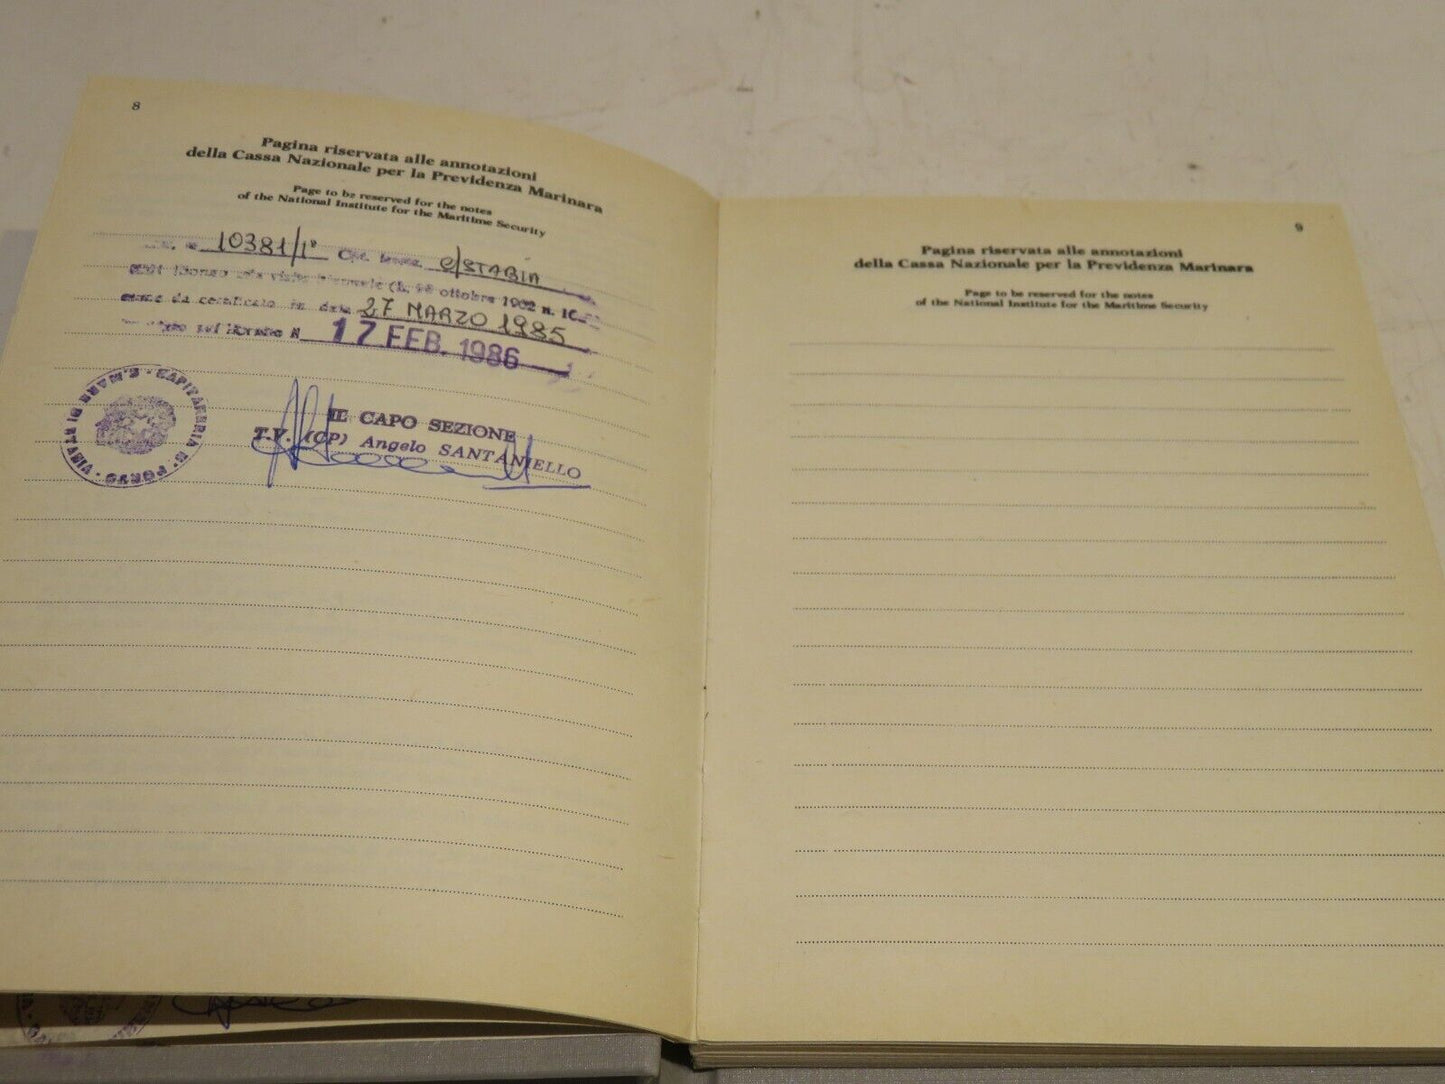 8
Pagina riservata alle annotazioni
della Cassa Nazionale per la Previdenza Marinara
Page to be reserved for the notes
of the National Institute for the Maritime Security
10381/1ª C/STABIA
visita biennale (L. ottobre 1962 n.
da certificato in data 27 MARZO 1985
17 FEB. 1986
IL CAPO SEZIONE
T.V. (CP) Angelo SANTANIELLO
CAPITANERIA
9
Pagina riservata alle annotazioni
della Cassa Nazionale per la Previdenza Marinara
Page to be reserved for the notes
of the National Institute for the Maritime Security